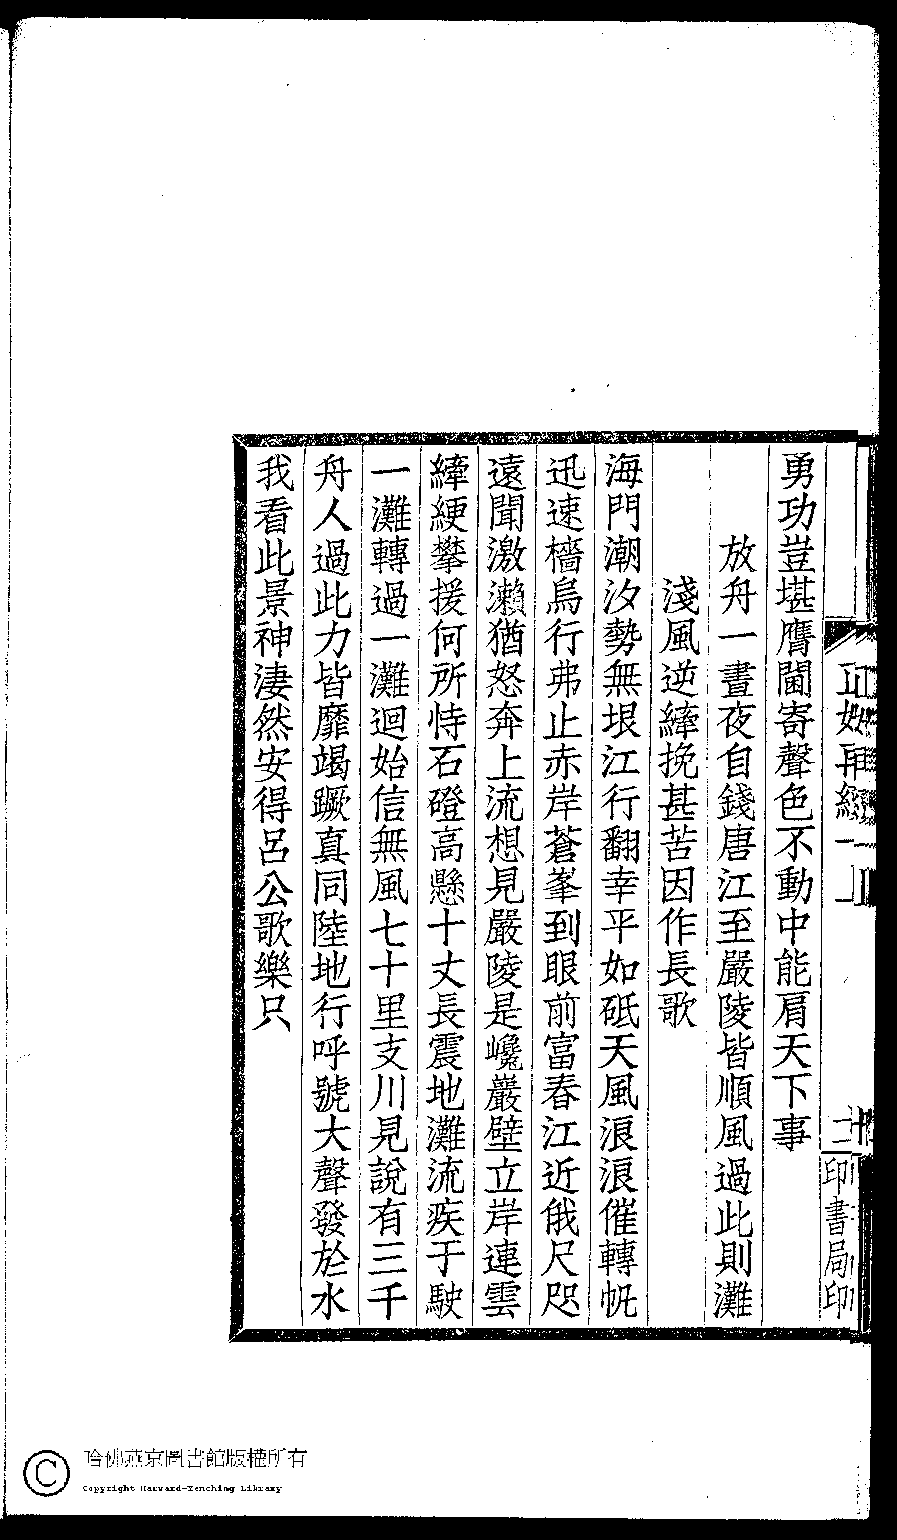 勇功豈堪膺閫寄聲色不動中能肩天下事
放舟一晝夜自錢唐江至嚴陵皆順風過此則灘
淺風逆縴挽甚苦因作長歌
海門潮汐勢無垠江行翻幸平如砥天風浪浪催轉帆
迅速檣烏行弗止赤岸蒼峯到眼前富春江近俄尺咫
遠聞激瀨猶怒奔上流想見嚴陵是巉巖壁立岸連雲
縴綆攀援何所恃石磴高懸十丈長震地灘流疾于駛
一灘轉過一灘迴始信無風七十里支川見說有三千
舟人過此力皆靡竭蹶真同陸地行呼號大聲發於水
我看此景神淒然安得呂公歌樂只
印書局印
哈佛燕京圖書館版權所有
Copyright Harvard-Yenching Library